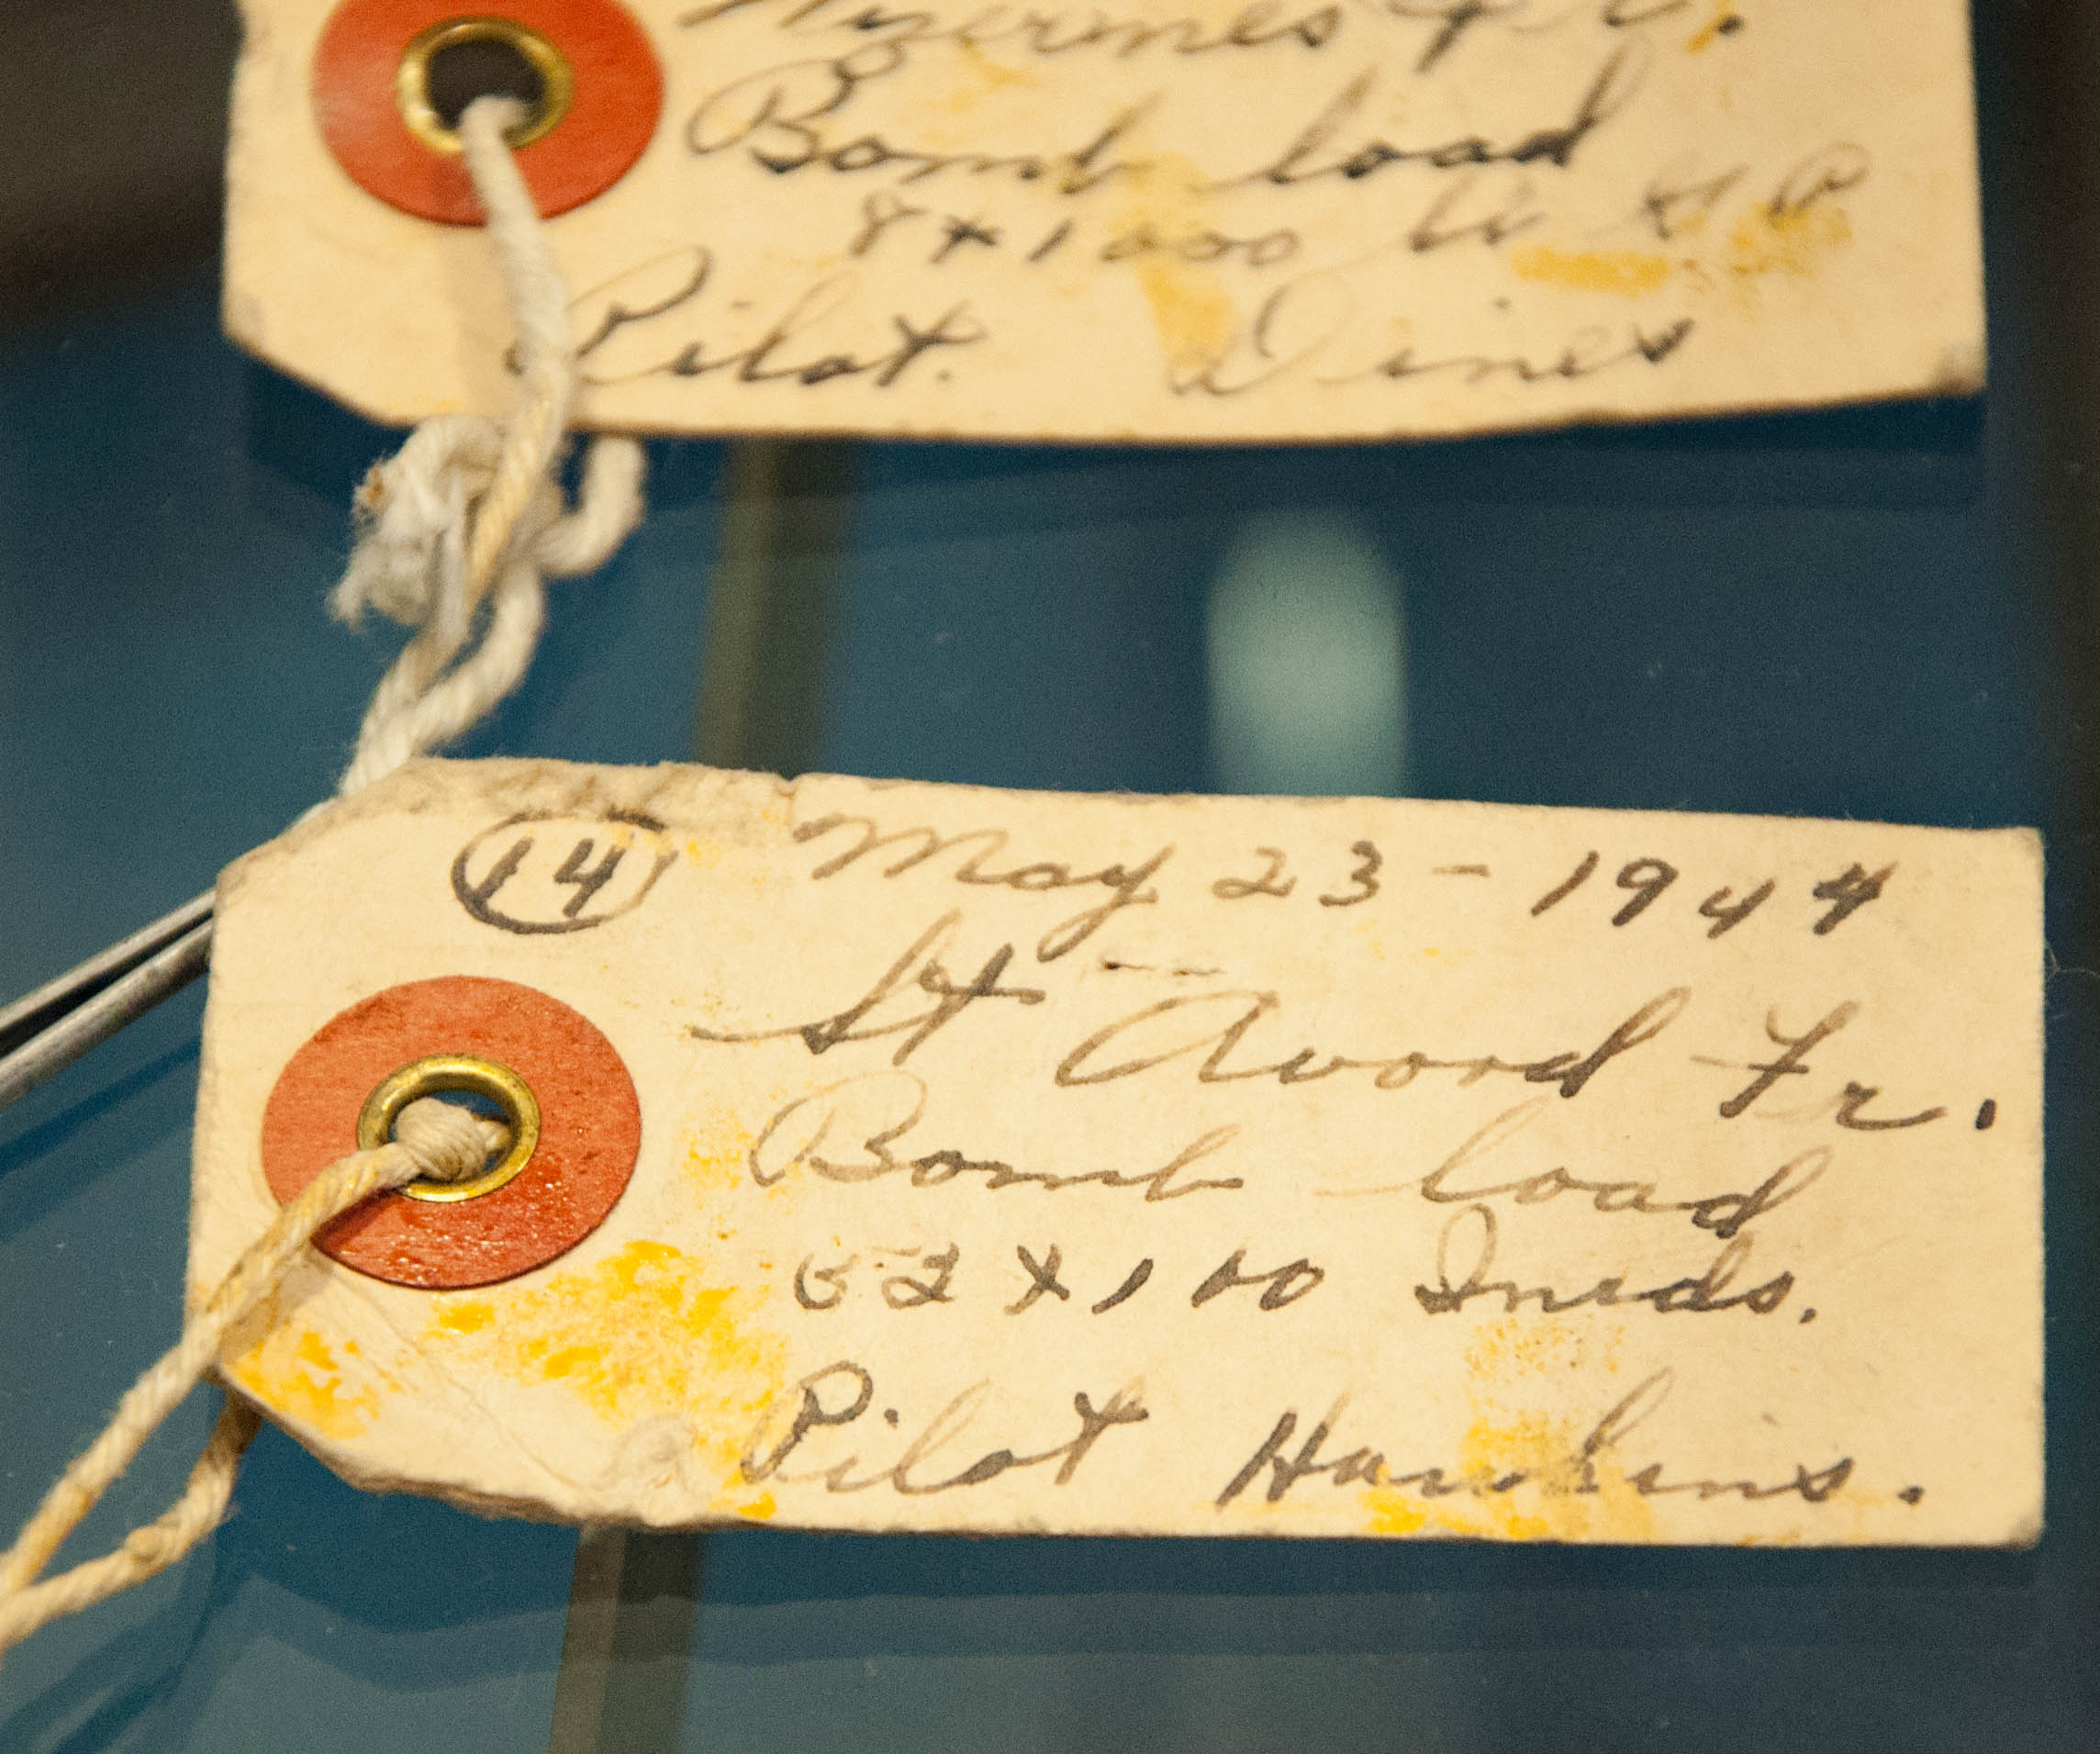 Wizernes Fr.
Bomb load
8 x 1000 lb G P
Pilot. Dines
14 May 23 - 1944
St Avord Fr.
Bomb load
52 x 100 Incds.
Pilot Hawkins.